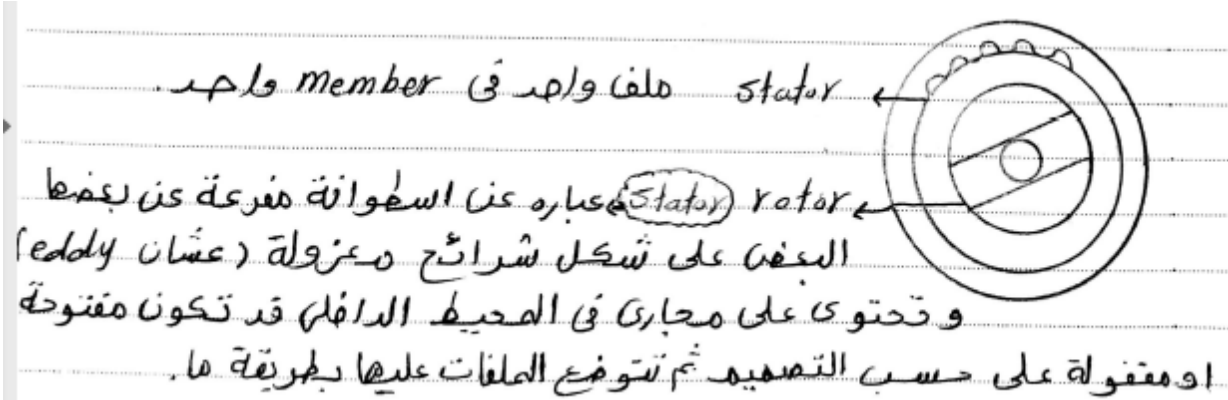 stator ملف واحد فى member واحد.
rotor (stator) عباره عن اسطوانة مفرغة عن بعضها
البعض على شكل شرائح معزولة (عشان eddy)
وتحتوى على مجارى فى المحيط الداخلى قد تكون مفتوحة
او مقفولة على حسب التصميم ثم تتوضع الملفات عليها بطريقة ما.